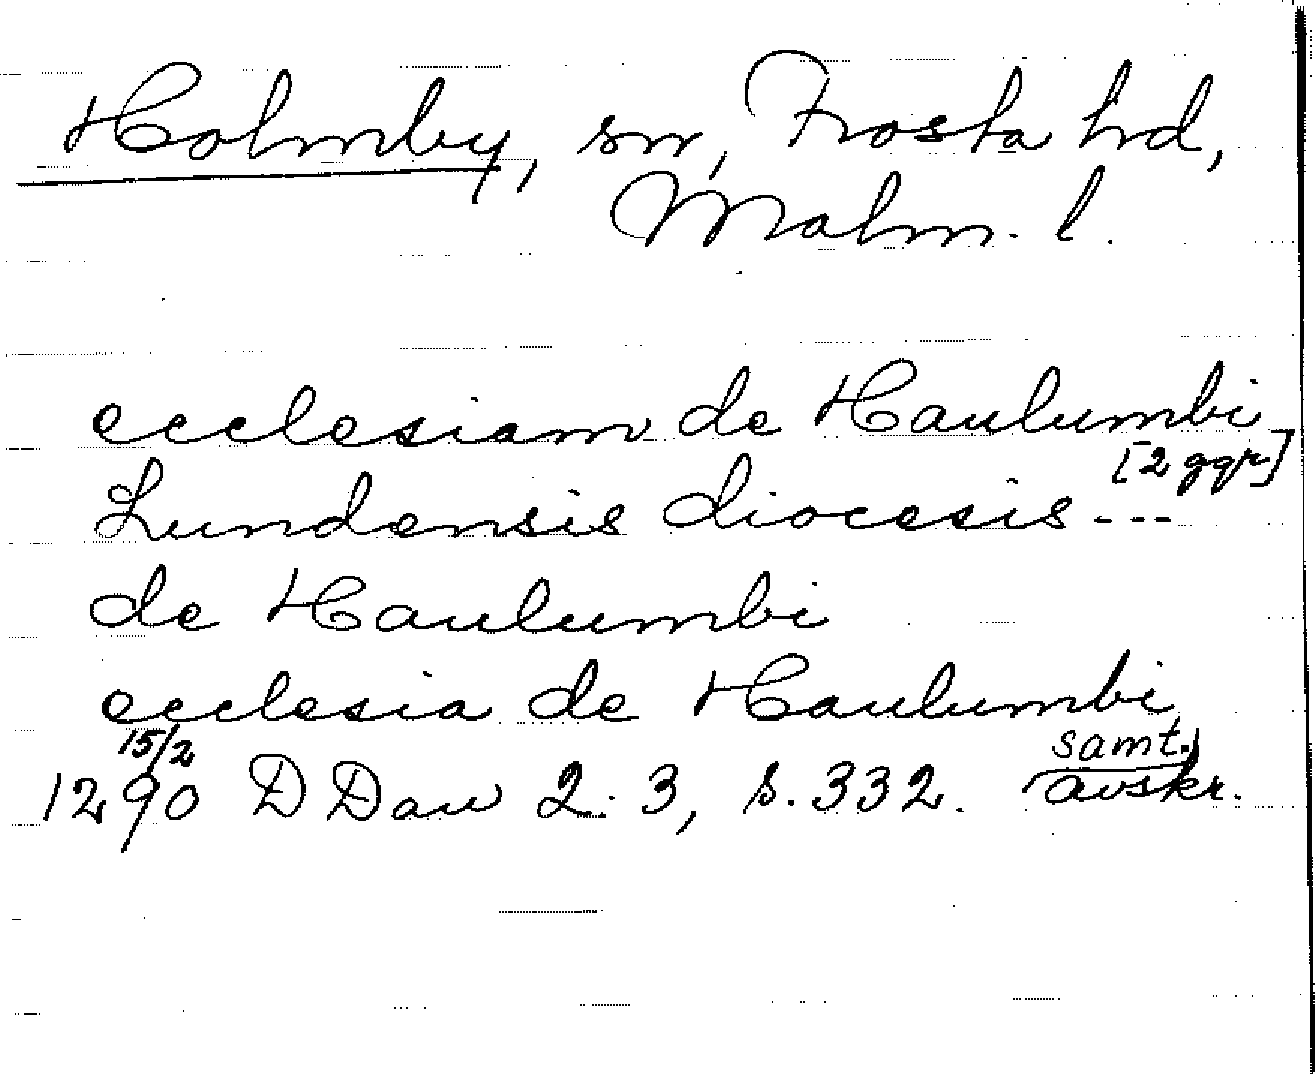 Holmby, sn, Frosta hd,
Malm. l.
ecclesiam de Haulumbi
[2 ggr]
Lundensis diocesis ---
de Haulumbi
ecclesia de Haulumbi
15/2 samt.
1290 DDan 2. 3, s. 332. avskr.